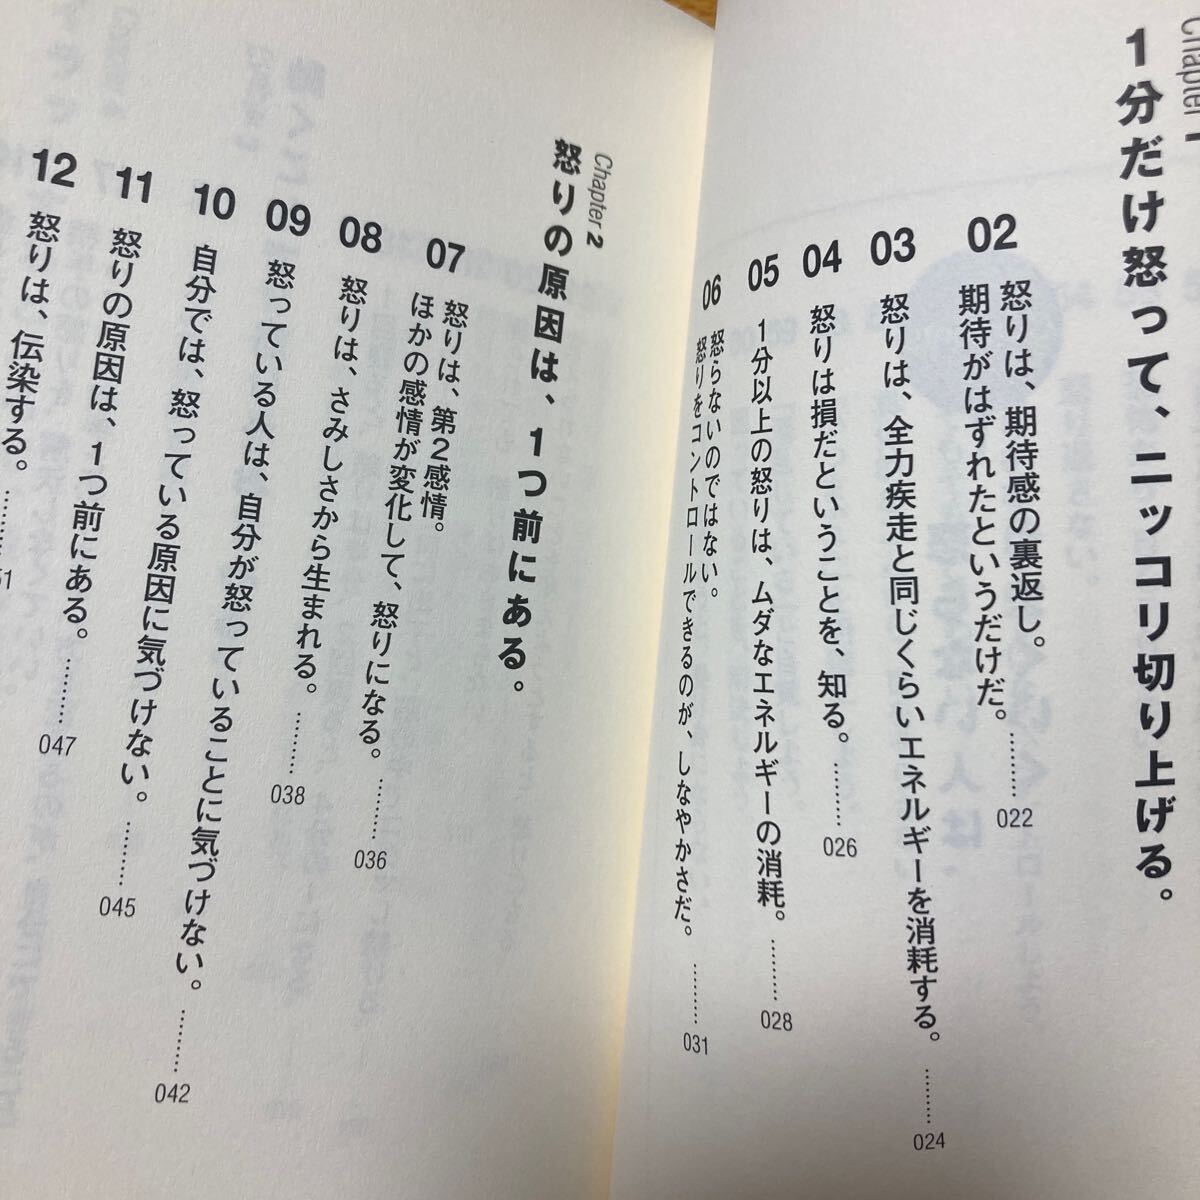 Chapter 1
1分だけ怒って、ニッコリ切り上げる。
02 怒りは、期待感の裏返し。
期待がはずれたというだけだ。………… 022
03 怒りは、全力疾走と同じくらいエネルギーを消耗する。………… 024
04 怒りは損だということを、知る。………… 026
05 1分以上の怒りは、ムダなエネルギーの消耗。………… 028
06 怒らないのではない。
怒りをコントロールできるのが、しなやかさだ。………… 031
Chapter 2
怒りの原因は、1つ前にある。
07 怒りは、第2感情。
ほかの感情が変化して、怒りになる。………… 036
08 怒りは、さみしさから生まれる。………… 038
09 怒っている人は、自分が怒っていることに気づけない。………… 042
10 自分では、怒っている原因に気づけない。………… 045
11 怒りの原因は、1つ前にある。………… 047
12 怒りは、伝染する。…………